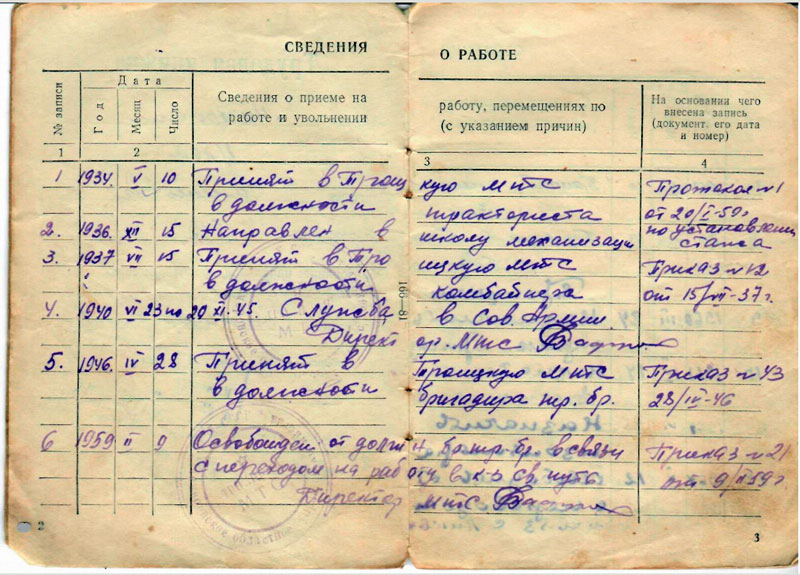 СВЕДЕНИЯ О РАБОТЕ
№ записи
Дата
Год
Месяц
Число
Сведения о приеме на
работу, перемещениях по
работе и увольнении
(с указанием причин)
На основании чего
внесена запись
(документ, его дата
и номер)
1 2 3 4
1 1934. V 10 Принят в Троицкую МТС Протокол №1
в должности тракториста от 20/I-59г.
2. 1936. XII 15 Направлен в школу механизации по установлени
стажа
3. 1937 VII 15 Принят в Троицкую МТС Приказ №12
в должности комбайнера от 15/VII-37г.
4. 1940 VI 23 по 20 XI. 45. Служба в Сов. Армии.
Директор. МТС
5. 1946. IV 28 Принят в Троицкую МТС Приказ №43
в должности бригадира тр. бр. 28/IV-46
6 1959 II 9 Освобожден от долж н. бр. тр. бр. в связи Приказ №21
с переходом на работу в к-з Св. путь от 9/II 59г
Директор МТС
166-81
2
3